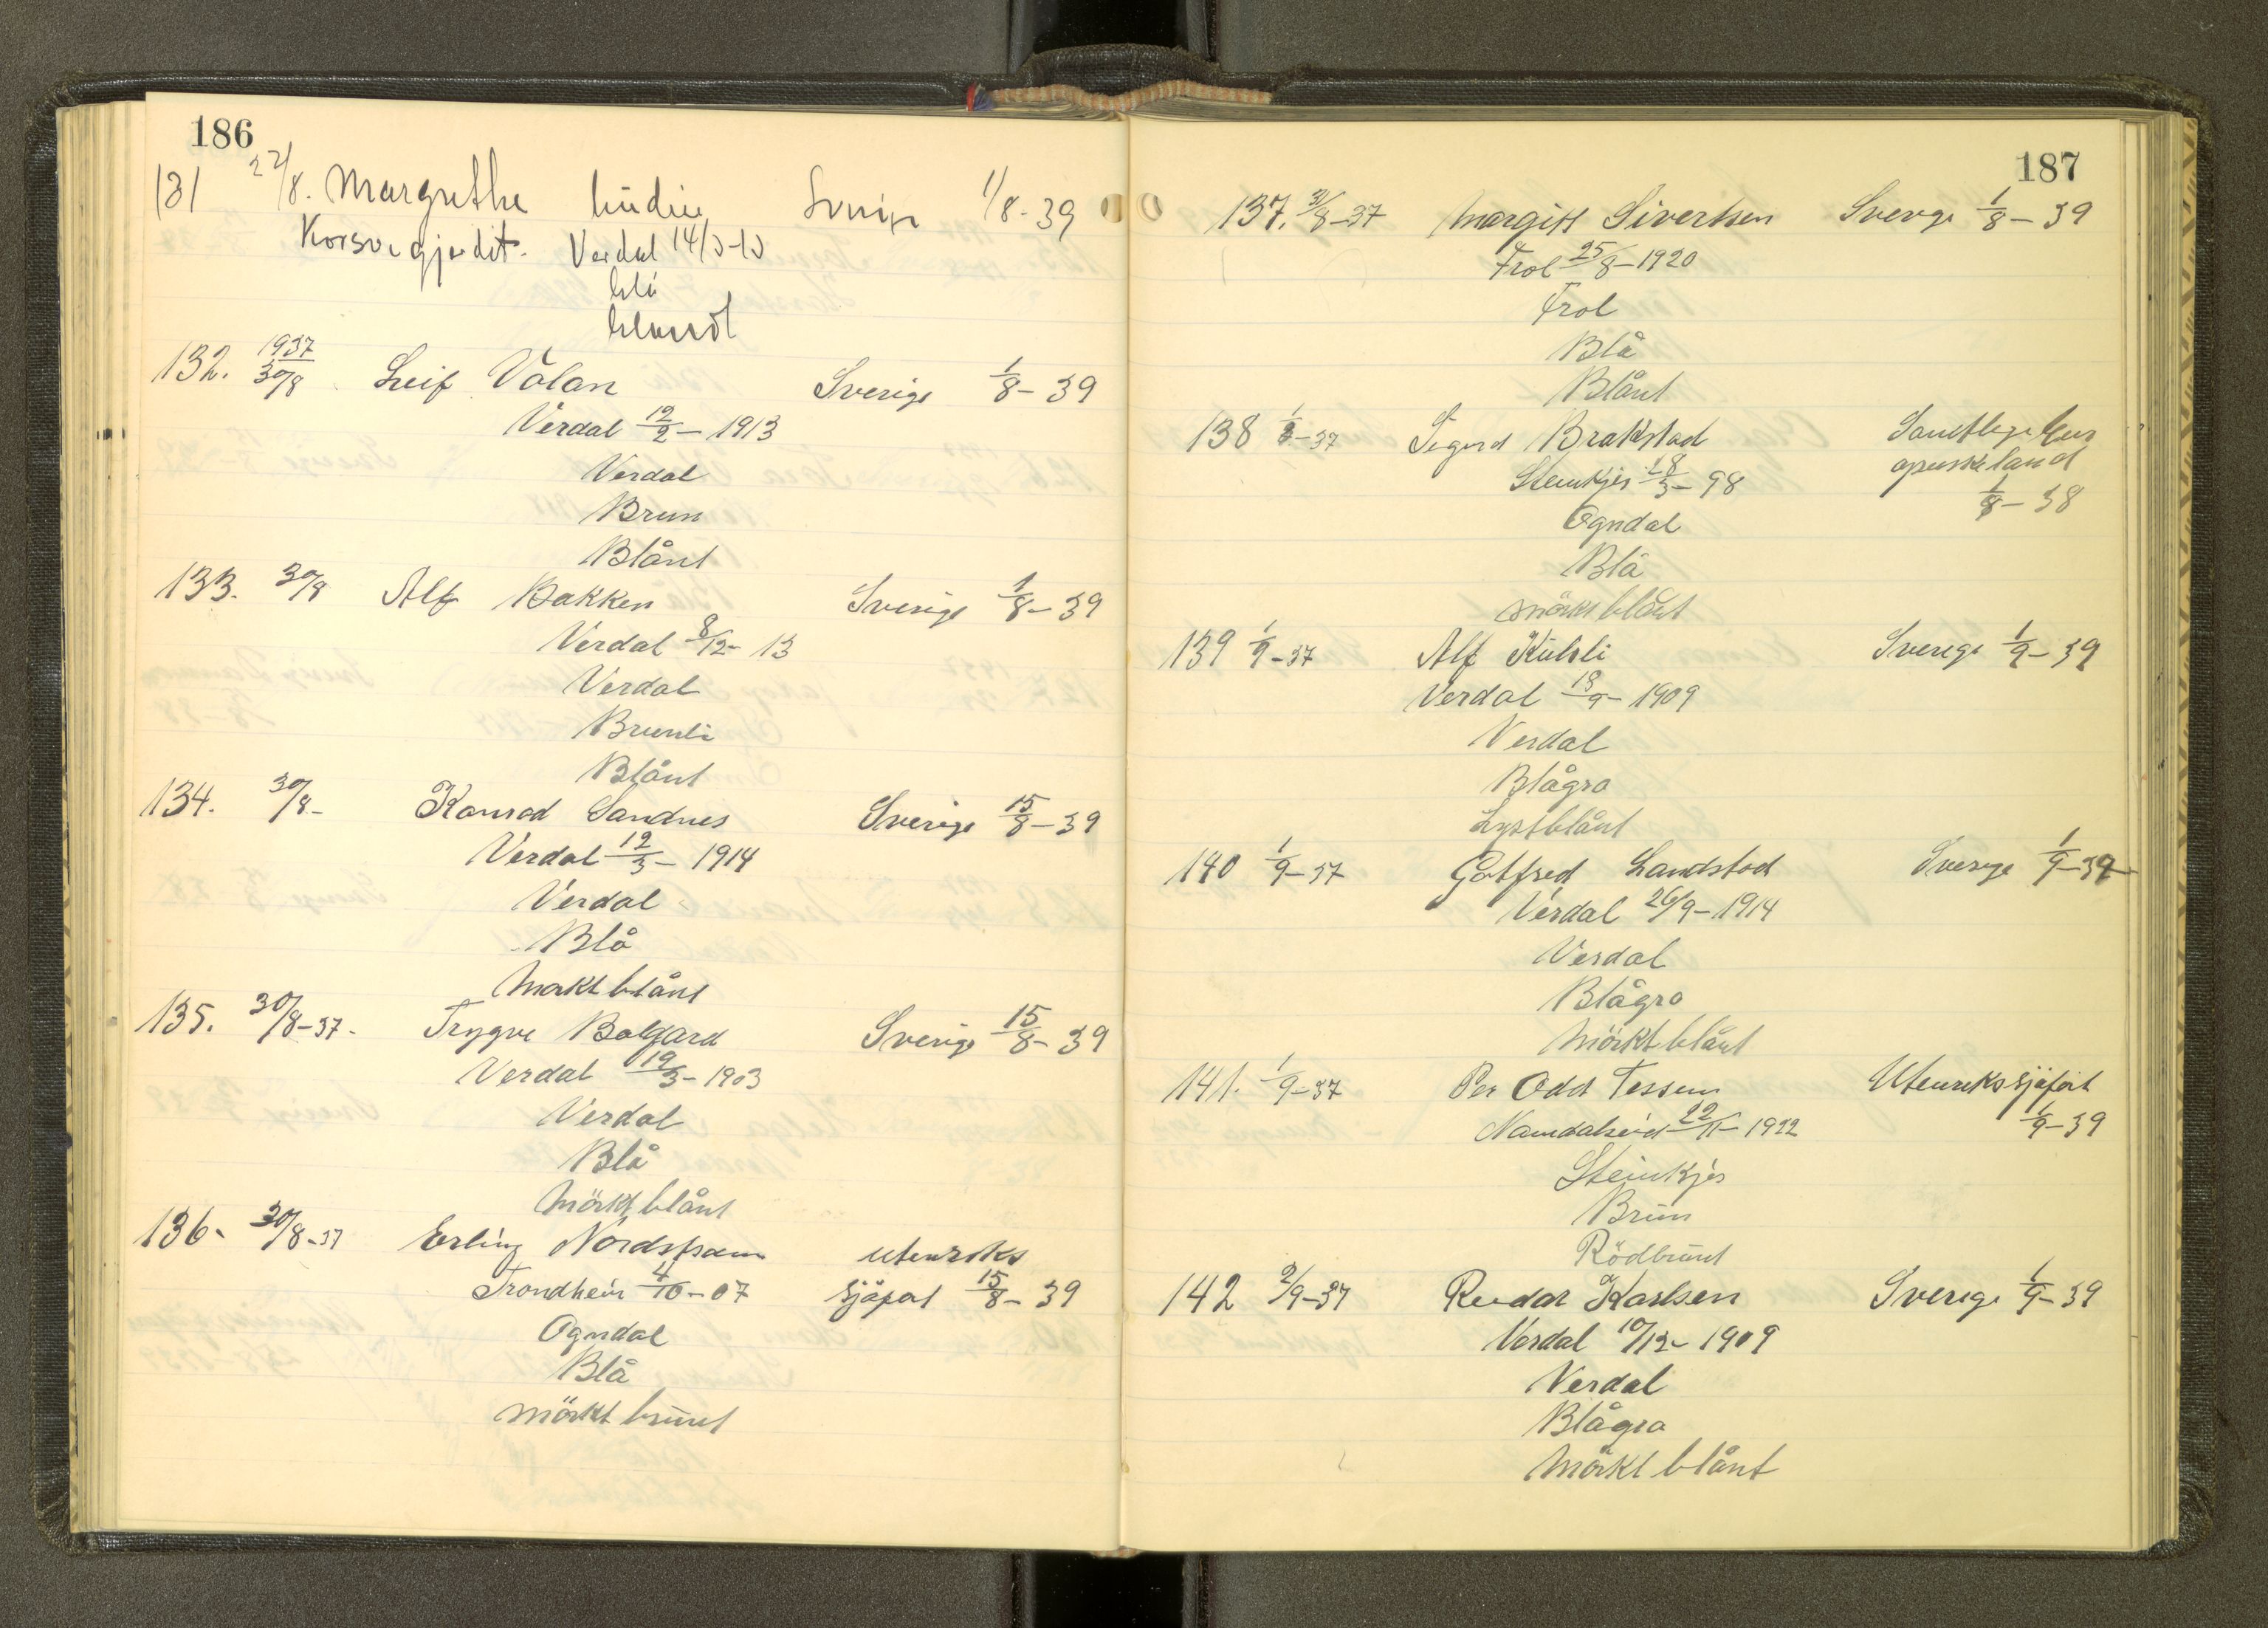 186
131 27/8. Margrethe Lindin Sverige 1/8-39
Verdal 14/3-13
blå
blondt
132. 1937 30/8 Leif Volan Sverige 1/8-39
Verdal 12/2-1913
Verdal
Brun
Blånt
133. 30/8 Alf Bakken Sverige 1/8-39
Verdal 8/12-13
Verdal
Blånt
134. 30/8- Konrad Sandnes Sverige 15/8-39
Verdal 12/3-1914
Verdal
Blå
Morkt blånt
135. 30/8-37- Trygve Bolgard Sverige 15/8-39
Verdal 19/3-1903
Verdal
Blå
Mörkt blånt
136- 30/8-37 Erling Nordstram utenriks
Trondheim 4/10-07 Sjöfart 15/8-39
Ogndal
Blå
mörkt brunt
187
137. 31/8-37 Margitt Sivertsen Sverge 1/8-39
Frol 25/8-1920
Frol
Blå
Blånt
138 1/8-37 Sigurd Brakstad Samtlige Eur
Steinkjer 18/3-98 opeiske land
Ogndal 1/8-38
Blå
mörkt blånt
139 1/9-37 Alf Kulsli Sverige 1/9-39
Verdal 18/9-1909
Verdal
Blågra
Lystblånt
140 1/9-37 Gotfred Landstad Sverge 1/9-39
Verdal 26/9-1914
Verdal
Blågra
Mörkt blånt
141. 1/9-37 Per Odd Tessem Utenriks sjöfart
Namdalseid 22/11-1922 1/9-39
Steinkjer
Brun
Rödbrunt
142 2/9-37 Reidar Karlsen Sverige 1/9-39
Verdal 10/12-1909
Verdal
Blågra
Mörkt blånt